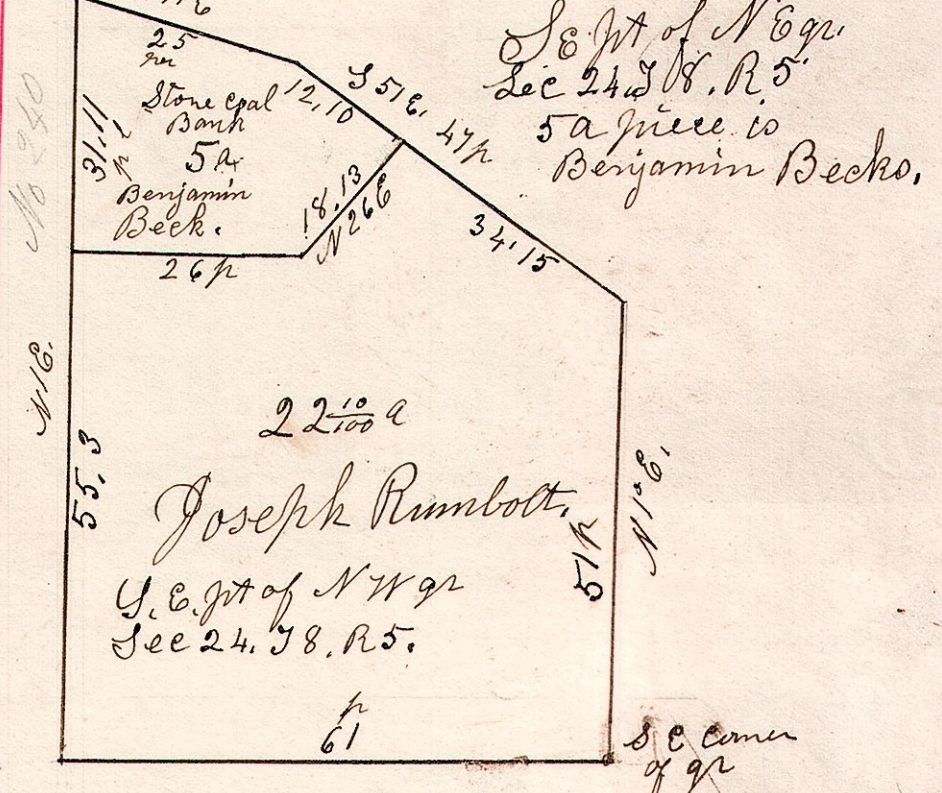 S E pt of N E qr.
Sec 24. T 8. R 5
5 a piece is
Benjamin Becks.
25
Stone coal
Bank
5 a
Benjamin
Beck.
12,10
S 51 E.
47 p
31,11
18.13
N 26 E
34,15
26 p
No 240
N 1 E.
55,3
22 10/100 a
Joseph Rumbolt.
S. E. pt of N W qr
Sec 24. T 8. R 5.
51 p
N 1° E.
p
61
S E Corner
of qr